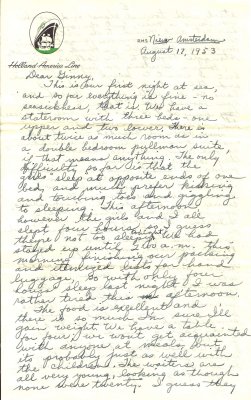 Holland-America Line
SMS Nieuw Amsterdam
August 17, 1953
Dear Ginny,
This is our first night at sea,
and so far everything is fine - no
seasickness, that is. We have a
stateroom with three beds - one
upper and two lower, there is
about twice as much room as in
a double bedroom pullman suite,
if that means anything. The only
difficulty so far is that the
girls sleep at opposite ends of one
bed, and much prefer kicking
and touching toes and giggling
to sleeping. This afternoon
however the girls and I all
slept four hours so I guess
they're not so sleepy. We had
stayed up until 2:00 a.m. this
morning finishing our packing
and
luggage. So with only four
hours sleep last night I was
rather tired this afternoon.
The food is excellent and
there is so much I'm sure I'll
gain weight. We have a table
for four, we won't get acquainted
with anyone at meals, but
its probably just as well with
the children. The waiters are
all very young, looking as though
none were twenty. I guess they